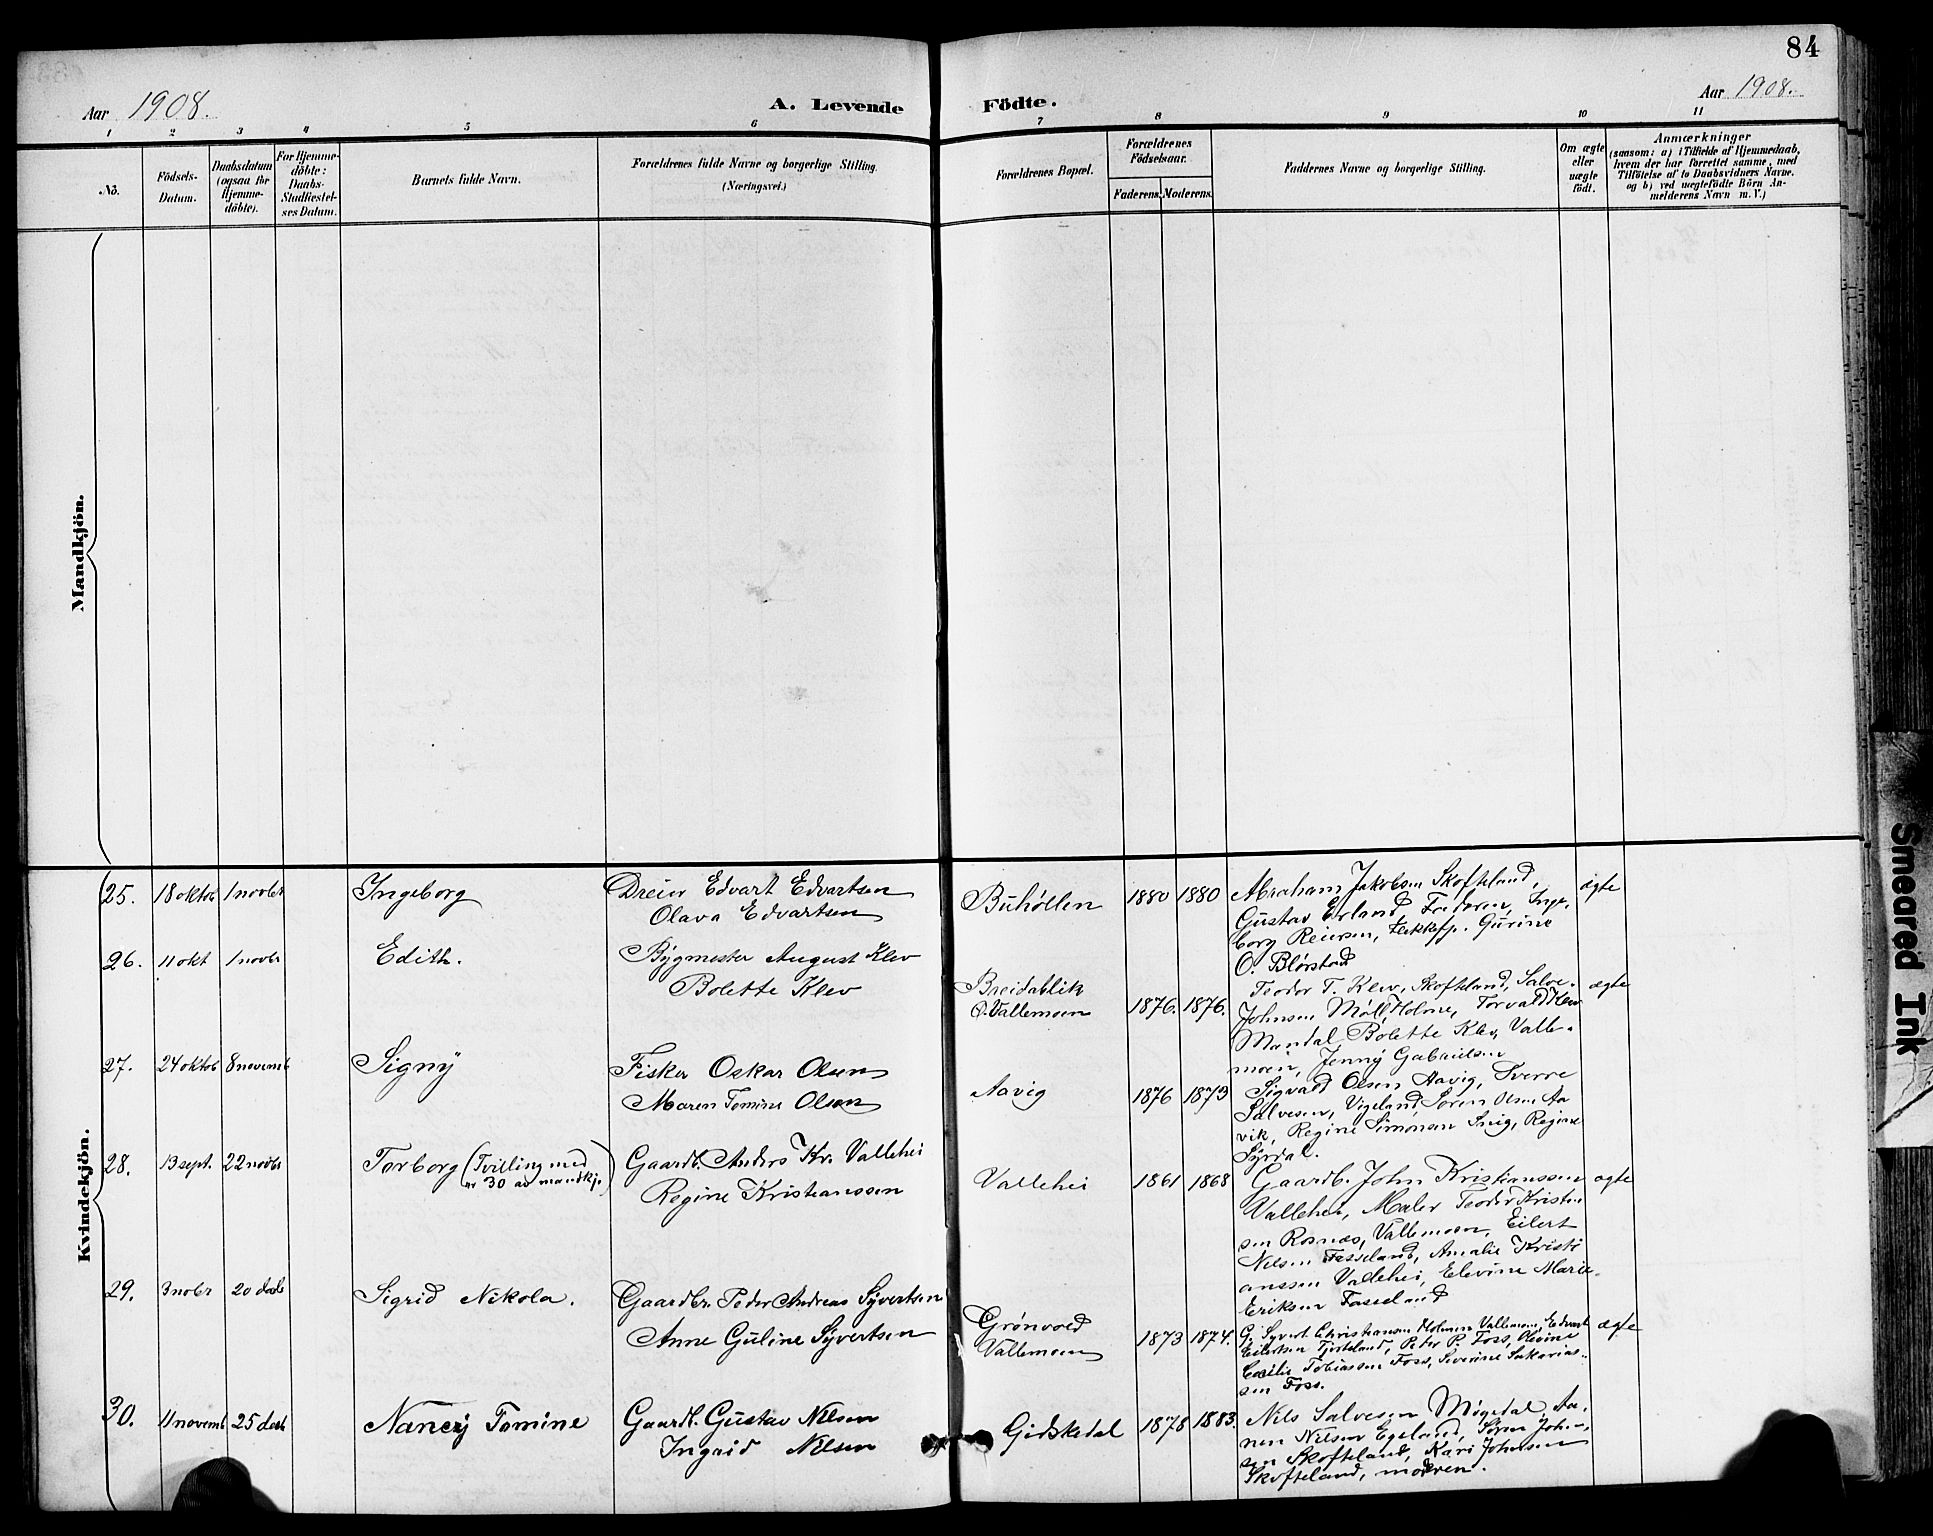 84
Aar 1908.
A. Levende Födte.
Aar 1908.
1 2 3 4 5 6 7 8 9 10 11
No.
Födsels-
Datum.
Daabsdatum
(ogsaa for
Hjemme-
döbte).
For Hjemme-
döbte:
Daabs-
Stadfæstel-
ses Datum.
Barnets fulde Navn.
Forældrenes fulde Navne og borgerlige Stilling.
(Næringsvei.)
Forældrenes Bopæl.
Forældrenes
Födselsaar.
Faderens. Moderens.
Faddernes Navne og borgerlige Stilling.
Om ægte
eller
uægte
födt.
Anmærkninger
(saasom: a) i Tilfælde af Hjemmedaab,
hvem der har forrettet samme, med
Tilföielse af to Daabsvidners Navne.
og b) ved uægtefödte Börn An-
melderens Navn m. V.)
Mandkjön.
Kvindekjön.
25. 18 oktbr 1 novbr Ingeborg
Dreier Edvart Edvartsen
Olava Edvartsen
Buhöllen 1880 1880
Abraham Jakobsen Skofteland,
Gustav Erland Inge-
borg Reiersen, Flekkefj. Gurine
O. Blørstad
ægte
26. 11 okt 1 novbr Edith.
Bygmester August Klev
Bolette Klev
Breidablik
Vallemoen 1876. 1876.
Teodor T. Klev, Skofteland, Salve
Johnsen Møll, Holme, Torvald Klev
Mandal Bolette Klev, Valle-
moen, Jenny Gabrielsen
ægte
27. 24 oktbr 8 novemb Signy
Fisker Oskar Olsen
Maren Tomine Olsen
Aavig 1876 1873
Sigvald Olsen Aavig, Sverre
Salvesen, Vigeland, Søren Olsen Aa
vik, Regine Simonsen Snig, Regine
Syrdal.
28. 13 sept. 22 novbr Torborg (Tvilling med
nr 30 av mandkj.)
Gaardb. Anders Kr. Vallehei
Regine Kristianssen
Vallehei 1861 1868
Gaardb. John Kristianssen
Vallehei, Maler Teodor Kristen
sen Rosnæs, Vallemoen, Eilert
Nilsen Fasseland, Amalie Kristi
anssen Vallehei, Elevine Marie
Eriksen Fasseland
ægte
29. 3 nobr 20 desb Sigrid Nikola.
Gaardbr. Peder Andreas Syvertsen
Anne Guline Syvertsen
Grønvold
Vallemoen 1873 1874.
G. Syvert Christiansen Holmen Vallemoen, Edvart
Eilertsen Tjorteland, Peter P. Foss, Olevine
Cecilie Tobiassen Foss, Severine Sakarias-
sen Foss.
ægte
30. 11 novemb 25 desb Nancy Tomine
Gaardb. Gustav Nilsen
Ingrid Nilsen
Gidskedal 1878 1883.
Nils Salvesen Møgedal, Aa-
nen Nilsen Egeland, Søren John-
sen Skofteland, Kari Johnsen
Skofteland, modren.
Smeared Ink